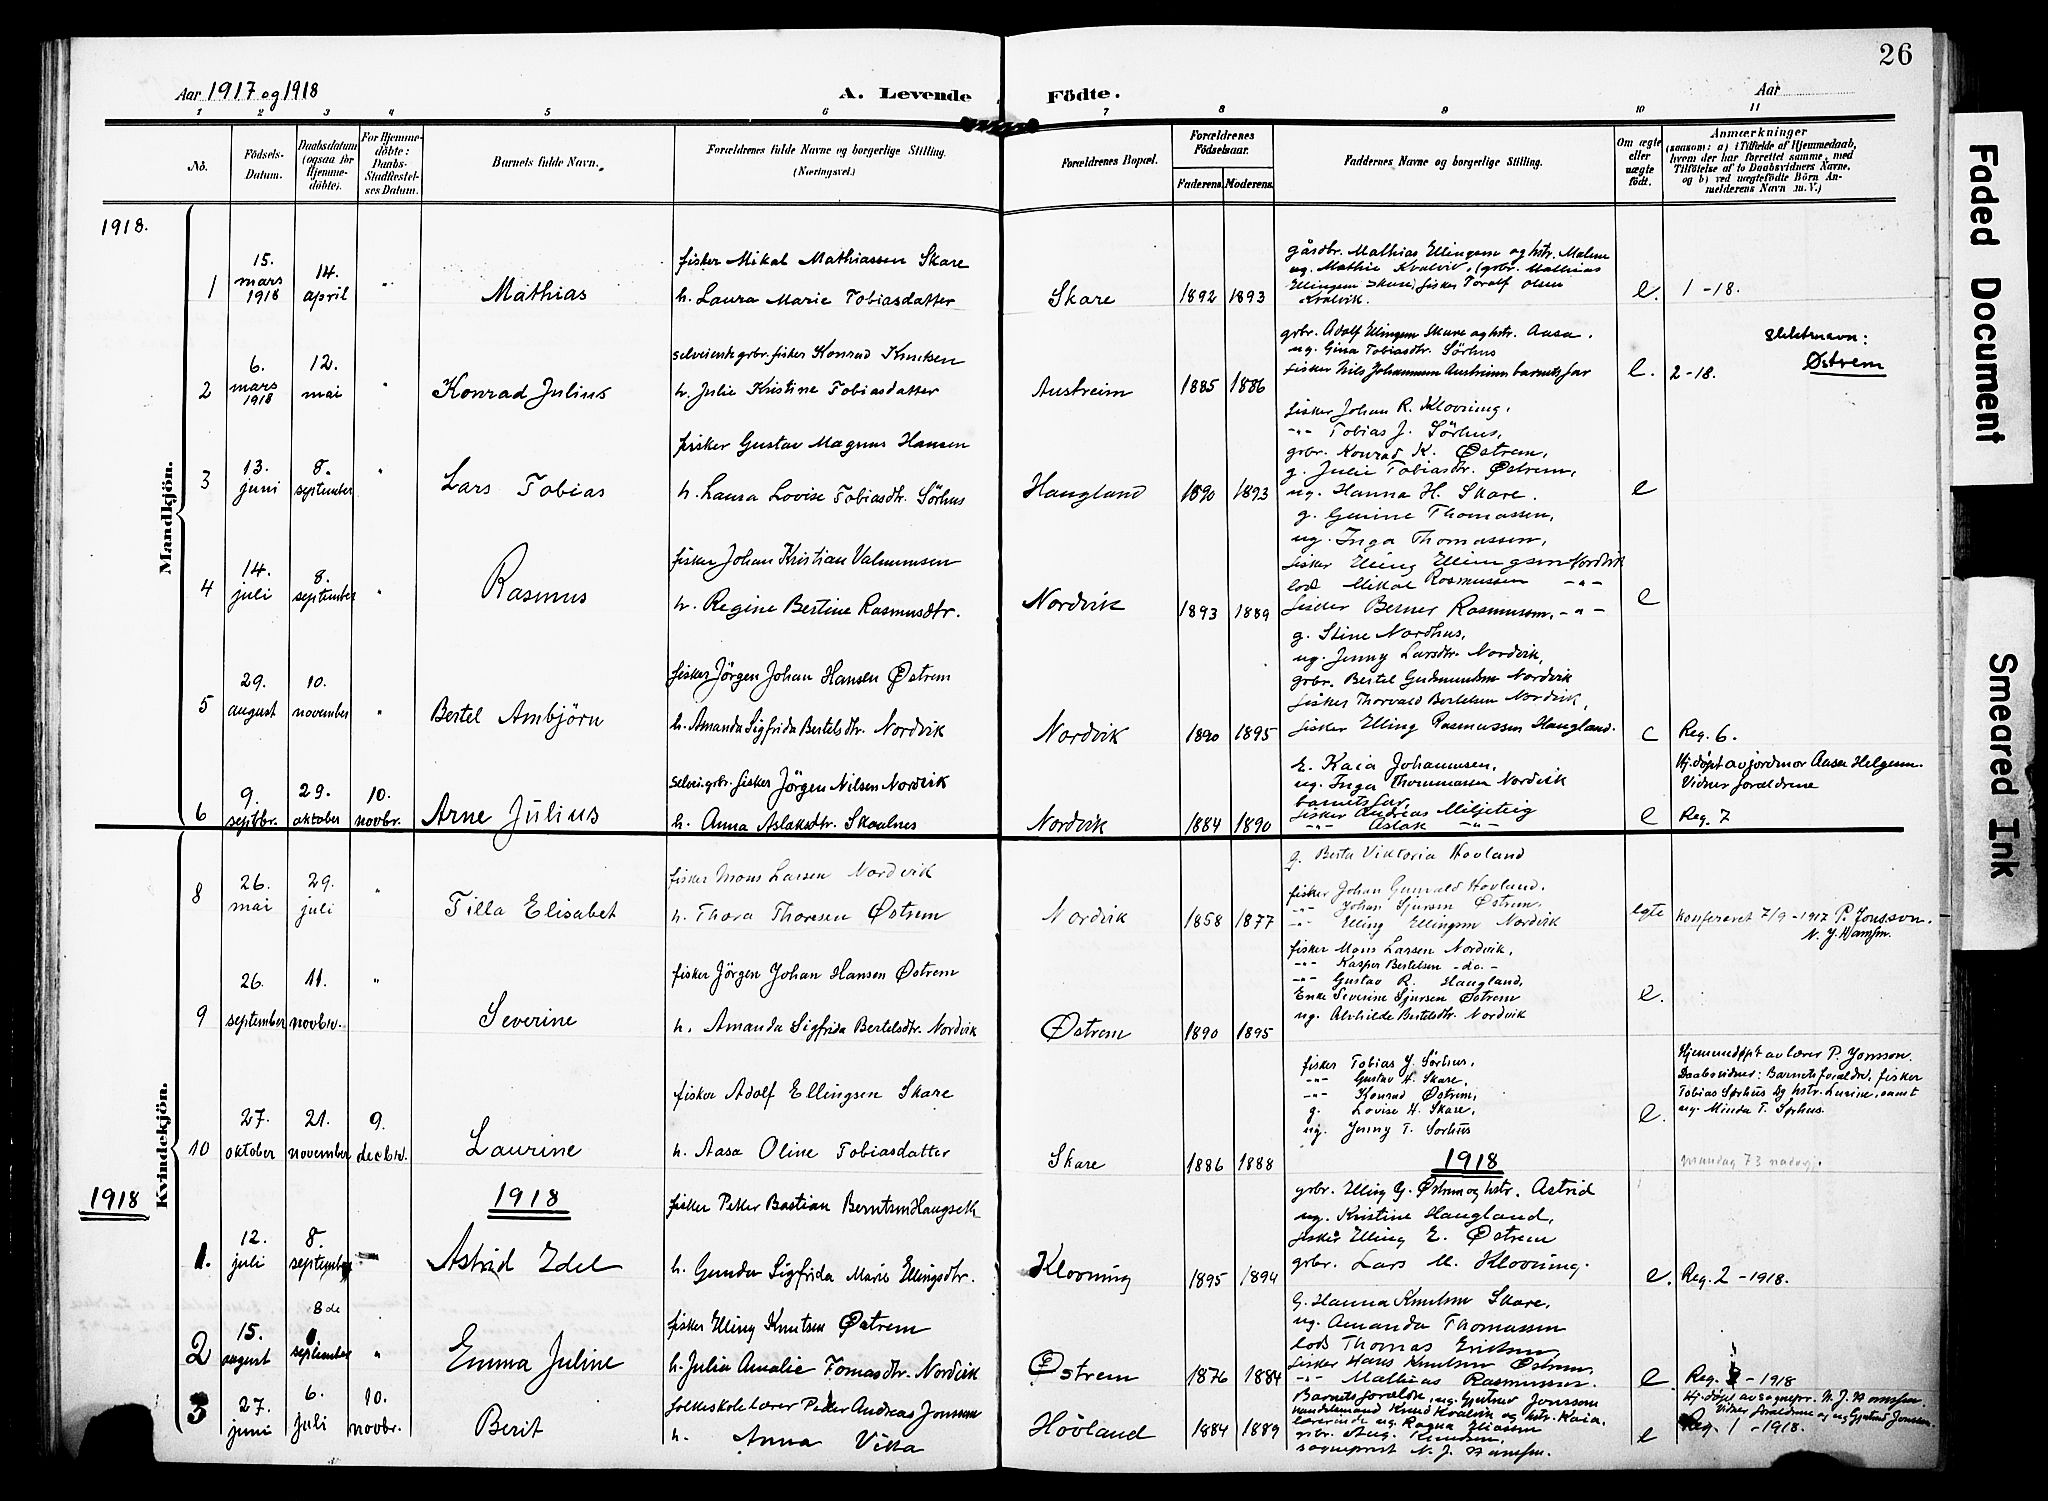 26
Aar 1917 og 1918
A. Levende Födte.
Aar
1 2 3 4 5 6 7 8 9 10 11
No.
Födsels-Datum.
Daabsdatum (ogsaa for Hjemme-döbte).
For Hjemme-döbte: Daabs-Stadfæstel-ses Datum.
Barnets fulde Navn.
Forældrenes fulde Navne og borgerlige Stilling. (Næringsvei.)
Forældrenes Bopæl.
Forældrenes Födselsaar.
Faderens. Moderens.
Faddernes Navne og borgerlige Stilling.
Om ægte eller uægte födt.
Anmærkninger (saasom: a) i Tilfælde af Hjemmedaab, hvem der har forrettet samme, med Tilföielse af to Daabsvidners Navne, og b) ved uægtefödte Börn An-melderens Navn m. V.)
1918.
Mandkjön.
1 15. mars 1918 14. april " Mathias
fisker Mikal Mathiassen Skare
h. Laura Marie Tobiasdatter
Skare 1892 1893
gårdbr. Mathias Ellingsen og hstr. Malene
ug. Mathie Kvalvik, (grbr. Mathias
Ellingsen Skare) fisker Toralf Olsen
Kvalvik.
e. 1-18.
2 6. mars 1918 12. mai " Konrad Julius
selveiende grbr. fisker Konrad Knutsen
h. Julie Kristine Tobiasdatter
Austreim 1885 1886
grbr. Adolf Ellingsen Skare og hstr. Aasa.
ug. Gina Tobiasdtr. Sörhus
fisker Nils Johannesen Austreim barnets far
e. 2-18.
Slektsnavn:
Østrem
3 13. juni 8. september " Lars Tobias
fisker Gustav Magnus Hansen
h. Laura Lovise Tobiasdtr. Sörhus
Haugland 1890 1893
fisker Johan R. Klovning,
-"- Tobias J. Sörhus,
grbr. Konrad K. Østrem,
g. Julie Tobiasdtr. Østrem,
ug. Hanna H. Skare.
e
4 14. juli 8. september " Rasmus
fisker Johan Kristian Valmunsen
h. Regine Bertine Rasmusdtr.
Nordvik 1893 1889
g. Gurine Thomassen,
ug. Inga Thomassen,
fisker Elling Ellingsen Nordvik
lod Mikal Rasmussen -"-
fisker Berner Rasmussen, -"-
e
5 29. august 10. november " Bertel Ambjörn
fisker Jörgen Johan Hansen Østrem
h. Amanda Sigfrida Bertelsdtr. Nordvik
Nordvik 1890 1895
g. Stine Nordhus,
ug. Jenny Larsdtr. Nordvik,
grbr. Bertel Gudmundsen Nordvik
fisker Thorvald Bertelsen Nordvik,
fisker Elling Rasmussen Haugland.
e Reg. 6.
6 9. septbr. 29. oktober 10. novbr. Arne Julius
selvei. grbr. fisker Jörgen Nilsen Nordvik
h. Anna Aslaksdtr. Skaalnes
Nordvik 1884 1890
E. Kaia Johannesen,
ug. Inga Thommasen Nordvik
barnets far,
fisker Andreas Miljeteig
-"- Aslak -"-
e
Hj.døpt av jordmor Aasa Helgesen.
Vidner foreldrene
Reg. 7
Kvindekjön.
8 26. mai 29. juli " Tilla Elisabet
fisker Mons Larsen Nordvik
h. Thora Thoresen Østrem
Nordvik 1858 1877
g. Berta Viktoria Hovland
fisker Johan Gunvald Hovland.
-"- Johan Sjursen Østrem.
-"- Elling Ellingsen Nordvik
egte konfereret 7/9-1917 P. Jonsson.
N. J. Hansen.
9 26. september 11. novbr. " Severine
fisker Jörgen Johan Hansen Østrem
h. Amanda Sigfrida Bertelsdtr. Nordvik
Østrem 1890 1895
fisker Mons Larsen Nordvik,
-"- Kasper Bertelsen -do.-
-"- Gustav R. Haugland,
Enke Severine Sjursen Østrem
ug. Alvhilde Bertelsdtr. Nordvik
e.
10 27. oktober 21. november 9. decbr. Laurine
fisker Adolf Ellingsen Skare
h. Aasa Oline Tobiasdatter
Skare 1886 1888
fisker Tobias J. Sörhus,
-"- Gustav H. Skare,
-"- Konrad Østrem,
g. Lovise H. Skare,
ug. Jenny T. Sorhus
e.
Hjemmedøpt av lærer P. Jonsson.
Daabsvidner: Barnets foreldre, fisker
Tobias Sørhus og hstr. Lurine, samt
ug. Minda T. Sørhus.
1918
1918
1918
1. 12. juli 8. september Astrid Edel
fisker Peter Bastian Berntsen Haugseth
h. Gunda Sigfrida Marie Ellingsdtr.
Klovning 1895 1894
grbr. Elling G. Østrem og hstr. Astrid
ug. Kristine Haugland,
fisker Elling E. Østrem
grbr. Lars M. Klovning.
e. Reg. 2-1918.
2 15. august 8de september " Emma Juline
fisker Elling Knutsen Østrem
h. Julia Amalie Tomasdtr. Nordvik
Østrem 1876 1884
G. Hanna Knutsen Skare,
ug. Amanda Thomassen
lods Thomas Eriksen,
fisker Hans Knutsen Østrem,
-"- Mathias Rasmussen.
e. Reg. -1918
3 27. juni 6. juli 10. novbr. Berit
folkeskolelærer Peder Andreas Jonsson
h. Anna Vikka
Hövland 1884 1889
Barnets foreldre, ug. Gjertrud Jonsson
handelsmand Knud Kvalvik og hstr. Kaia.
lærerinde ug. Ragna Eliassen
grbr. Aug. Knudsen,
sogneprest N. J. Hansen.
e
Hj.døpt av sognepr. N. J. Hansen
Vidner foreldrene og ug Gjertrud Jonsson.
Reg. 1-1918.
Faded Document
Smeared Ink